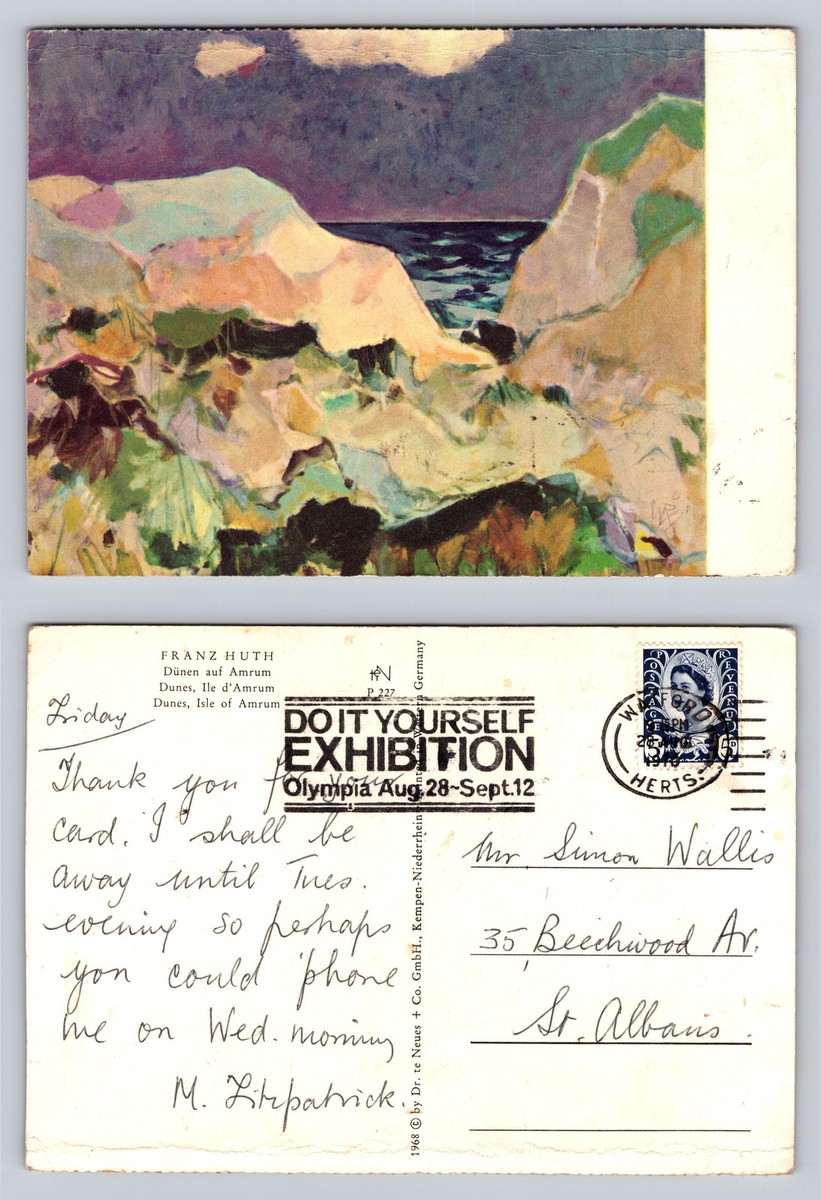 FRANZ HUTH
Dünen auf Amrum
Dunes, Ile d'Amrum
Dunes, Isle of Amrum
P 227
DO IT YOURSELF
EXHIBITION
Olympia Aug. 28~Sept. 12
POSTAGE
REVENUE
WATFORD
PM
1970
HERTS.
Friday
Thank you for your
card. I shall be
away until Tues.
evening so perhaps
you could 'phone
me on Wed. morning
M. Fitzpatrick.
1968 © by Dr. te Neues + Co. GmbH., Kempen-Niederrhein Printed in Western Germany
Mr. Simon Wallis
35, Beechwood Av.
St. Albans.